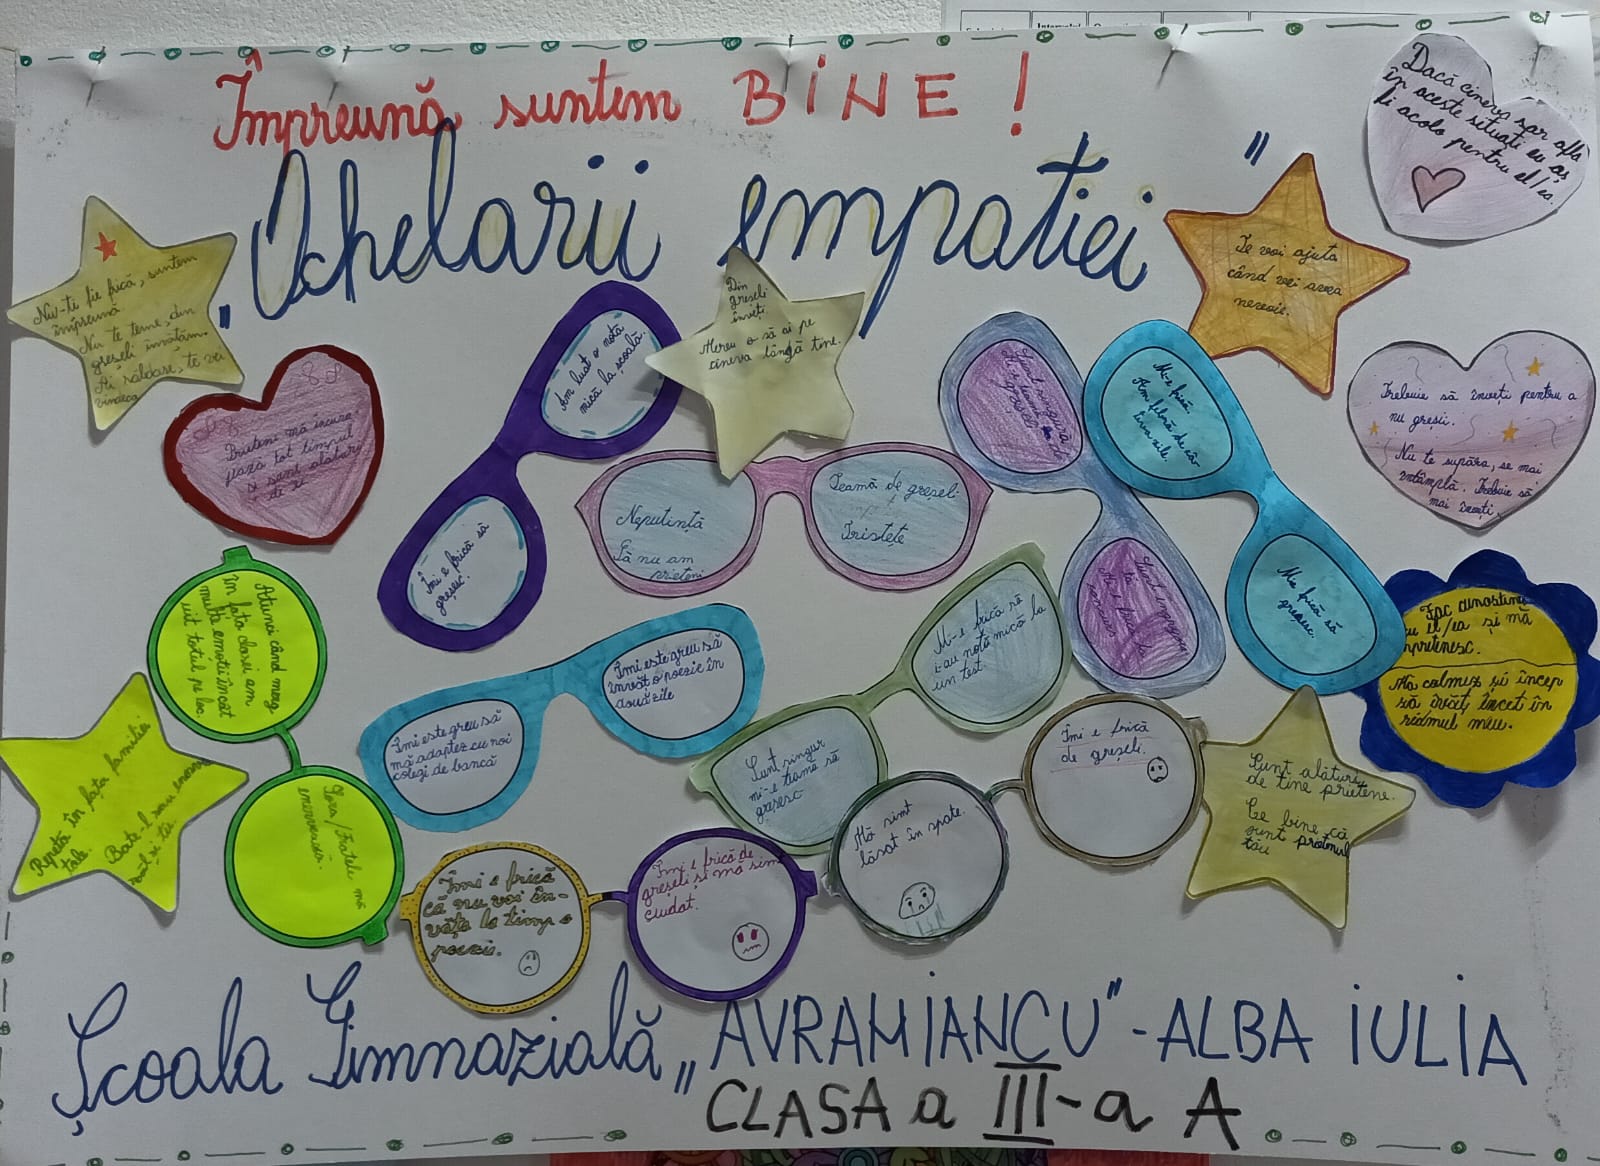 Împreună suntem BINE!
„Ochelarii empatiei"
Dacă cineva sar afla
în aceste situați eu aș
fi acolo pentru el/ea.
Nu-ți fie frică, suntem
împreună
Nu te teme, din
greșeli învățăm.
Ai răbdare, te vei
vindeca
Din
greșeli
înveți.
Mereu o să ai pe
cineva lângă tine.
Te voi ajuta
când vei avea
nevoie.
Prieteni mă încura-
jază tot timpul
și sunt alături
de ei
Am luat o notă
mică la școală.
Îmi e frică să
greșesc.
Neputință
Că nu am
prieteni
Teamă de greșeli
Tristețe
Sunt singură
M-e frică.
Am filră de câr
tivozile.
Mie frică să
greșesc.
Trebuie să înveți pentru a
nu greși.
Nu te supăra, se mai
întâmplă. Trebuie să
mai înveți.
Atunci când merg
în fața clasei am
multe emoții încât
uit totul pe loc.
Sora/Fratele mă
enervează.
Îmi este greu să
mă adaptez cu noi
colegi de bancă
Îmi este greu să
învăt o poezie în
două zile
M-e frică să
i-au notă mică la
un test.
Sunt singur
mi-e teamă să
greșesc
Fac cunoștință
cu el/ea și mă
împrietenesc.
Mă calmez și încep
să învăț încet în
ritmul meu.
Repetă în fața familiei
tale.
Îmi e frică
că nu voi în-
văța la timp o
poezie.
Îmi e frică de
greșeli și mă simt
ciudat.
Mă simt
lăsat în spate.
Îmi e frică
de greșeli.
Sunt alături
de tine prietene.
Ce bine că
sunt prietenul
tău
Școala Gimnazială „AVRAM IANCU"-ALBA IULIA
CLASA a III-a A